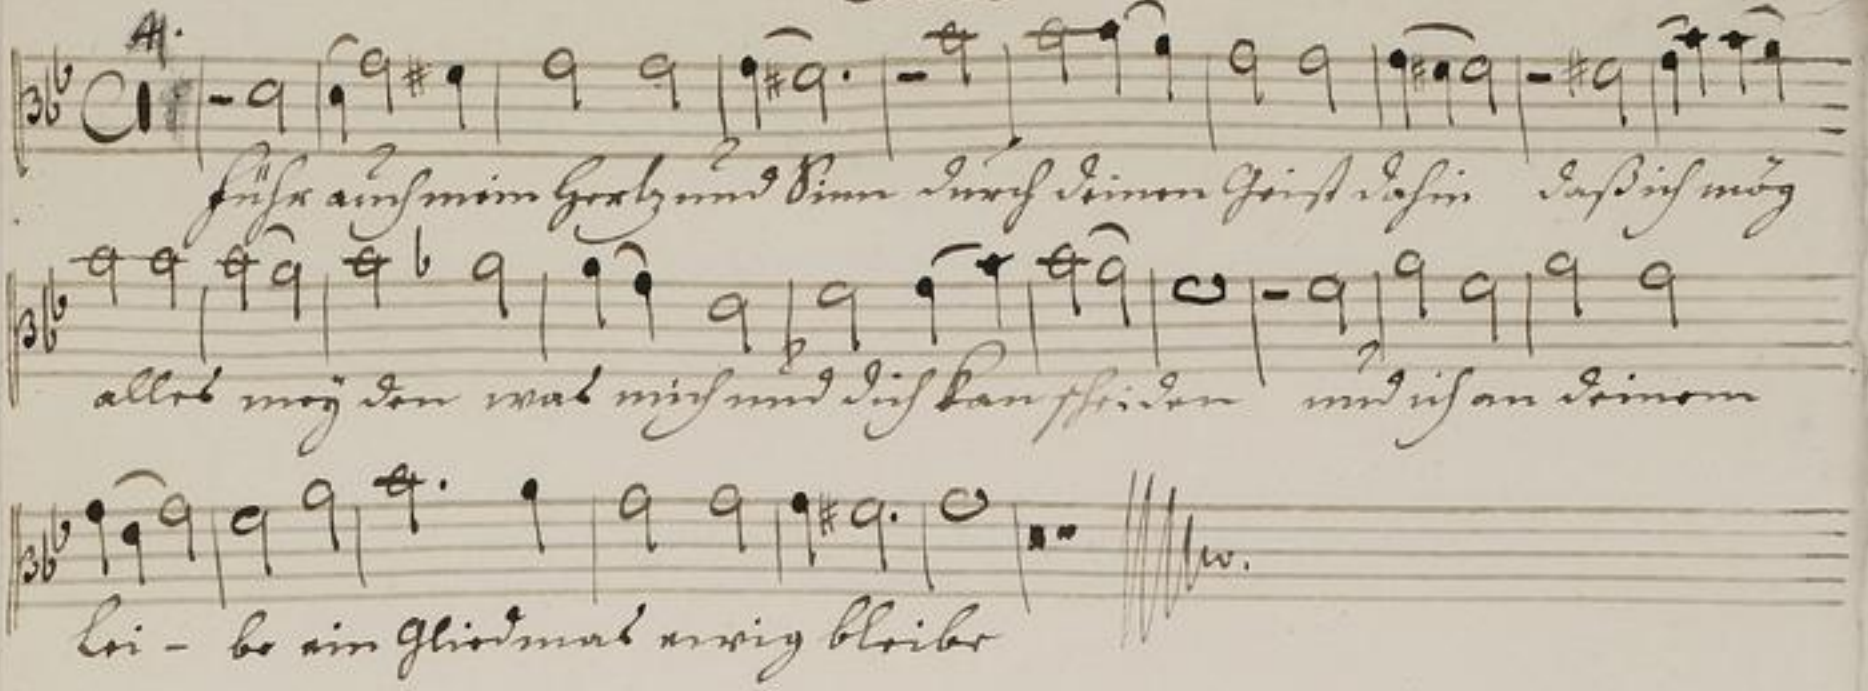 A.
führ auch mein Hertz und Sinn durch deinen Geist dahin daß ich mög
alles meyden was mich und dich kan scheiden und ich an deinem
Lei - be ein Gliedmas ewig bleibe